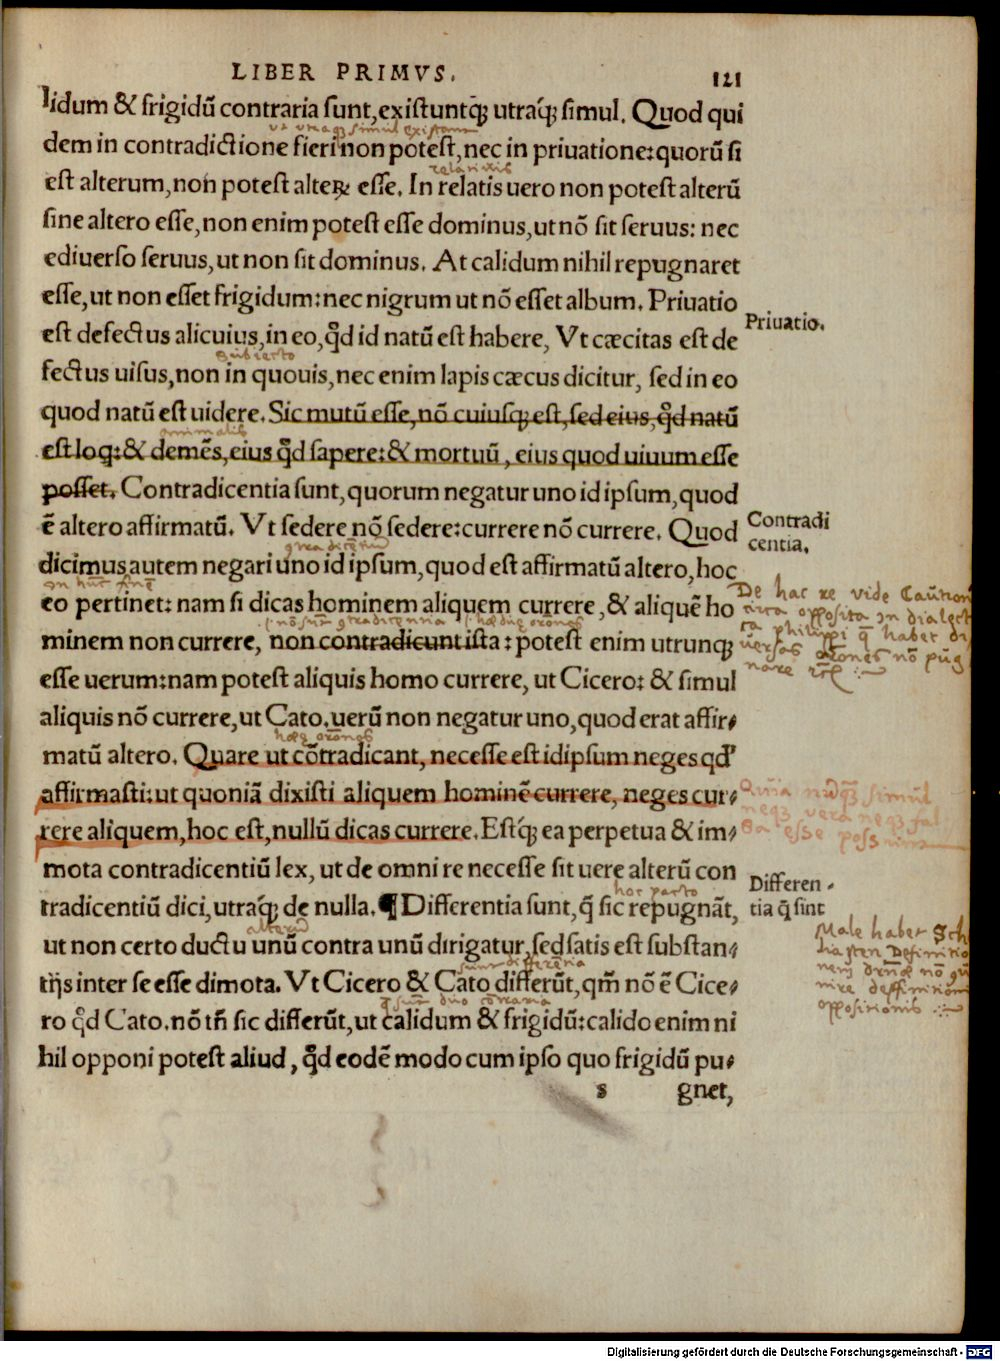 LIBER PRIMVS. 121
lidum & frigidũ contraria sunt, existuntq̃; utraq́; simul. Quod qui
ut utraq; simul existant
dem in contradictione fieri non potest, nec in priuatione: quorũ si
est alterum, non potest alteꝝ esse. In relatis uero non potest alterũ
sine altero esse, non enim potest esse dominus, ut nõ sit seruus: nec
ediuerso seruus, ut non sit dominus. At calidum nihil repugnaret
esse, ut non esset frigidum: nec nigrum ut nõ esset album. Priuatio
Priuatio.
est defectus alicuius, in eo, q̊d id natũ est habere, Vt cæcitas est de
subiecto
fectus uisus, non in quouis, nec enim lapis cæcus dicitur, sed in eo
quod natũ est uidere. Sic mutũ esse, nõ cuiusq; est, sed eius, q̊d natũ
animalis
est loq: & demẽs, eius q̊d sapere: & mortuũ, eius quod uiuum esse
posset. Contradicentia sunt, quorum negatur uno id ipsum, quod
ẽ altero affirmatũ. Vt sedere nõ sedere: currere nõ currere. Quod
Contradi
centia.
dicimus autem negari uno id ipsum, quod est affirmatũ altero, hoc
eo pertinet: nam si dicas hominem aliquem currere, & aliquẽ ho
De hac re vide
opposita in dialect
philippi q̃ habet di
versas orones nõ pug
nare
minem non currere, non contradicunt ista: potest enim utrunq;
esse uerum: nam potest aliquis homo currere, ut Cicero: & simul
aliquis nõ currere, ut Cato. uerũ non negatur uno, quod erat affir⸗
matũ altero. Quare ut cõtradicant, necesse est idipsum neges qd'
affirmasti: ut quoniã dixisti aliquem hominẽ currere, neges cur⸗
simul
neq; vera neq; fal
sa esse possunt
rere aliquem, hoc est, nullũ dicas currere. Estq́; ea perpetua & im⸗
mota contradicentiũ lex, ut de omni re necesse sit uere alterũ con
Differen⸗
tia q̃ sint
hoc pacto
tradicentiũ dici, utraq́; de nulla. ¶ Differentia sunt, q̃ sic repugnãt,
alterũ
ut non certo ductu unũ contra unũ dirigatur, sed satis est substan⸗
Male habet
sunt differẽtia
tijs inter se esse dimota. Vt Cicero & Cato differũt, qm̃ nõ ẽ Cice⸗
oppositionis
q̃ sunt duo cõtraria
ro q̊d Cato. nõ tñ sic differũt, ut calidum & frigidũ: calido enim ni
hil opponi potest aliud, q̊d eodẽ modo cum ipso quo frigidũ pu⸗
s gnet,
Digitalisierung gefördert durch die Deutsche Forschungsgemeinschaft - DFG